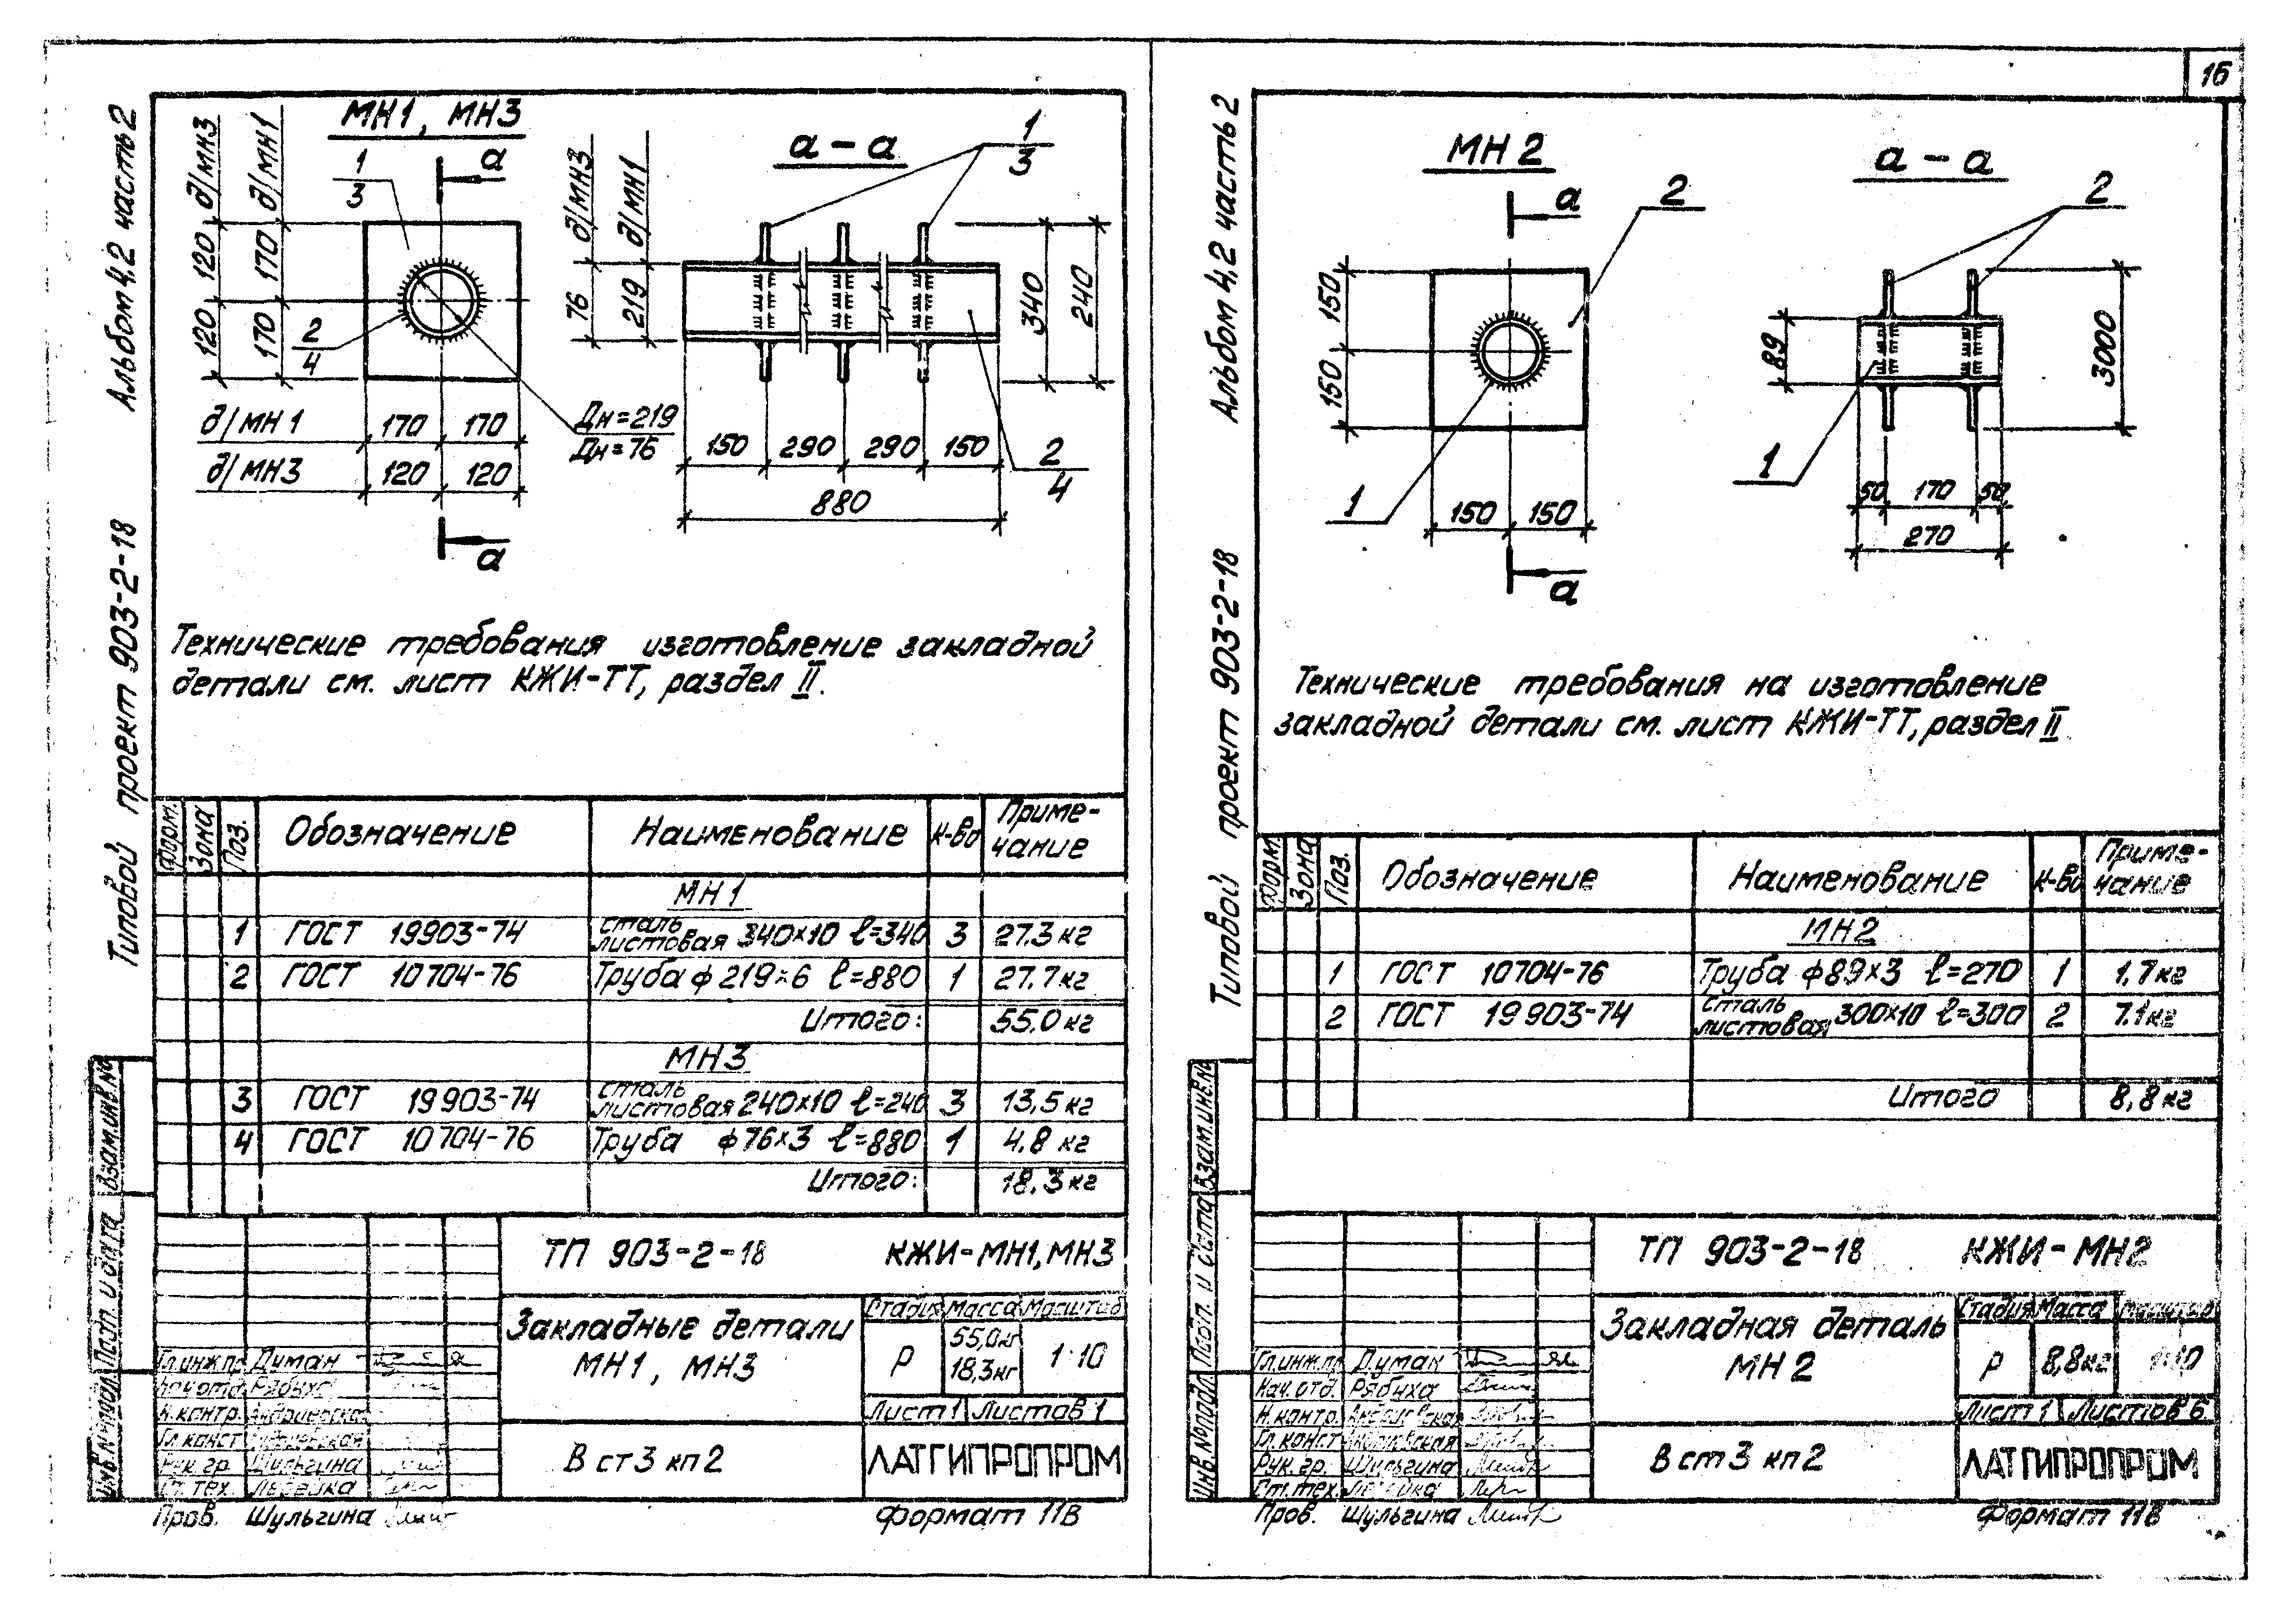 16
Альбом 4.2 часть 2
Типовой проект 903-2-18
МН1, МН3
д/МН3
д/МН1
120
120
170
170
1
3
а
2
4
Дн=219
Дн=76
д/МН 1 170 170
д/МН3 120 120
а
а - а
1
3
д/МН3
д/МН1
76
219
340
240
150 290 290 150
880
2
4
Технические требования изготовление закладной
детали см. лист КЖИ-ТТ, раздел II.
Форм. Зона Поз. Обозначение Наименование к-во Приме-
чание
МН1
1 ГОСТ 19903-74 сталь листовая 340×10 ℓ=340 3 27.3 кг
2 ГОСТ 10704-76 Труба ф 219×6 ℓ=880 1 27.7кг
Итого: 55.0 кг
МН3
3 ГОСТ 19903-74 сталь листовая 240×10 ℓ=240 3 13,5 кг
4 ГОСТ 10704-76 Труба ф76×3 ℓ=880 1 4.8 кг
Итого: 18.3 кг
Взам.инв.№
Подп. и дата
Инв.№подл.
ТП 903-2-18 КЖИ-МН1,МН3
Закладные детали
МН1, МН3
Стадия Масса Масштаб
Р 55,0кг 18,3кг 1:10
Лист 1 Листов 1
Гл.инж.пр. Думан
Нач.отд. Рябуха
Н.контр. Андриевская
Гл.конст. Андриевская
Рук.гр. Шульгина
Ст.тех.
В ст3 кп2
ЛАТГИПРОПРОМ
Пров. Шульгина
Формат 11В
Альбом 4.2 часть 2
Типовой проект 903-2-18
МН 2
а
2
150
150
1
150 150
а
а - а
2
89
3000
1
50 170 50
270
Технические требования на изготовление
закладной детали см. лист КЖИ-ТТ, раздел II
Форм. Зона Поз. Обозначение Наименование к-во Приме-
чание
МН2
1 ГОСТ 10704-76 Труба ф89×3 ℓ=270 1 1,7кг
2 ГОСТ 19903-74 сталь листовая 300×10 ℓ=300 2 7.1кг
Итого 8,8 кг
Взам.инв.№
Подп. и дата
Инв.№подл.
ТП 903-2-18 КЖИ-МН2
Закладная деталь
МН 2
Стадия Масса Масштаб
Р 8,8кг 1:10
Лист 1 Листов 6
Гл.инж.пр. Думан
Нач.отд. Рябуха
Н.контр. Андриевская
Гл.конст. Андриевская
Рук.гр. Шульгина
Ст.тех.
В ст3 кп2
ЛАТГИПРОПРОМ
Пров. Шульгина
Формат 11В